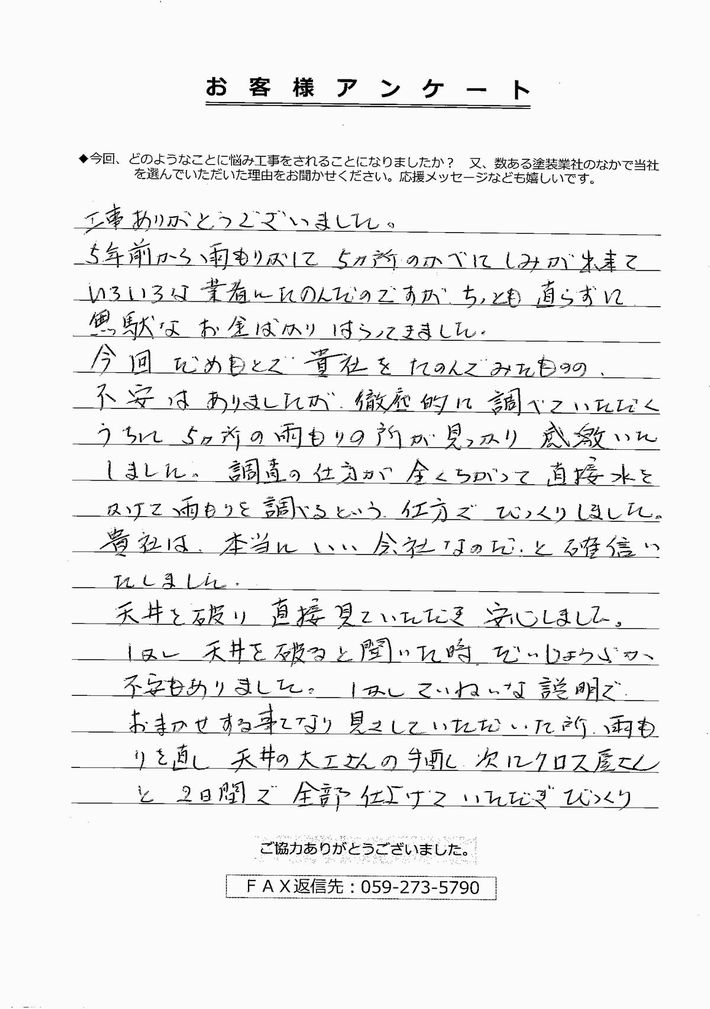 お客様アンケート
◆今回、どのようなことに悩み工事をされることになりましたか？　又、数ある塗装業社のなかで当社
を選んでいただいた理由をお聞かせください。応援メッセージなども嬉しいです。
工事ありがとうございました。
5年前から雨もりがして 5ヵ所のかべにしみが出来て
いろいろな業者にたのんだのですが、ちっとも直らずに
無駄なお金ばかりはらってきました。
今回だめもとで貴社をたのんでみたものの、
不安はありましたが、徹底的に調べていただく
うちに 5ヵ所の雨もりの所が見つかり 感激いた
しました。調査の仕方が全くちがって直接水を
かけて雨もりを調べるという、仕方でびっくりしました。
貴社は、本当にいい会社なのだ、と確信い
たしました。
天井を破り 直接見ていただき 安心しました。
しかし 天井を破ると聞いた時、だいじょうぶか、
不安もありました。しかしていねいな説明で
おまかせする事になり見さしていただいた所、雨も
りを直し 天井の大工さんの手直し、次にクロス屋さん
と 2日間で 全部仕上げていただぎびっくり
ご協力ありがとうございました。
ＦＡＸ返信先：059-273-5790